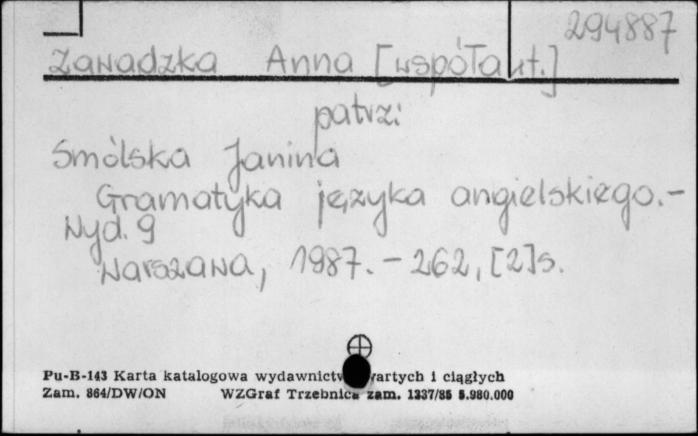 294887
Zawadzka Anna [współaut.]
patrz:
Smólska Janina
Gramatyka języka angielskiego.-
Wyd. 9
Warszawa, 1987. - 262, [2] s.
Pu-B-143 Karta katalogowa wydawnictw zwartych i ciągłych
Zam. 864/DW/ON WZGraf Trzebnica zam. 1337/85 5.980.000